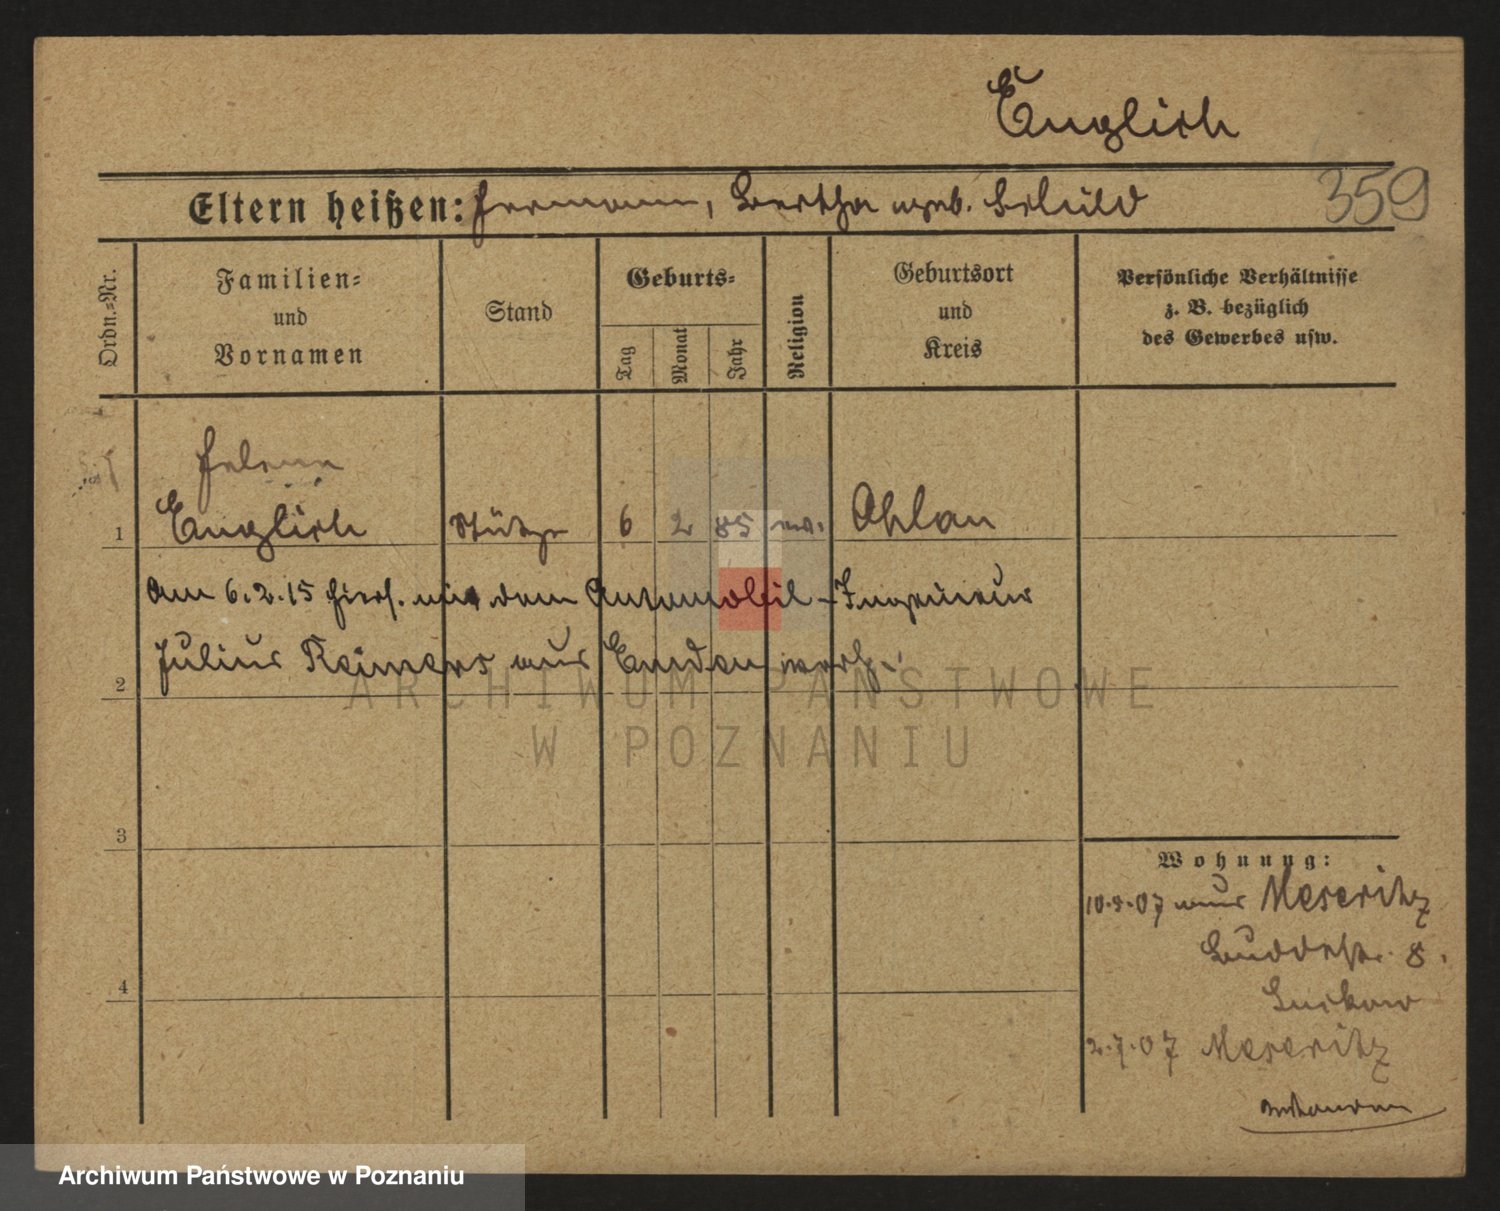 Englisch
359
Eltern heißen: Hermann, Bertha geb. Schild
Ordn.=Nr.
Familien=
und
Vornamen
Stand
Geburts=
Tag
Monat
Jahr
Religion
Geburtsort
und
Kreis
Persönliche Verhältnisse
z. B. bezüglich
des Gewerbes usw.
Helene
1 Englisch Stütze 6 2 85 ev. Ohlau
Am 6.2.15 hiers. mit dem Automobil-Ingenieur
2 Julius Reimers aus Emden verh.
ARCHIWUM PAŃSTWOWE
W POZNANIU
3
4
Wohnung:
10.5.07 aus Meseritz
Buddestr. 8.
2.7.07 Meseritz
Archiwum Państwowe w Poznaniu